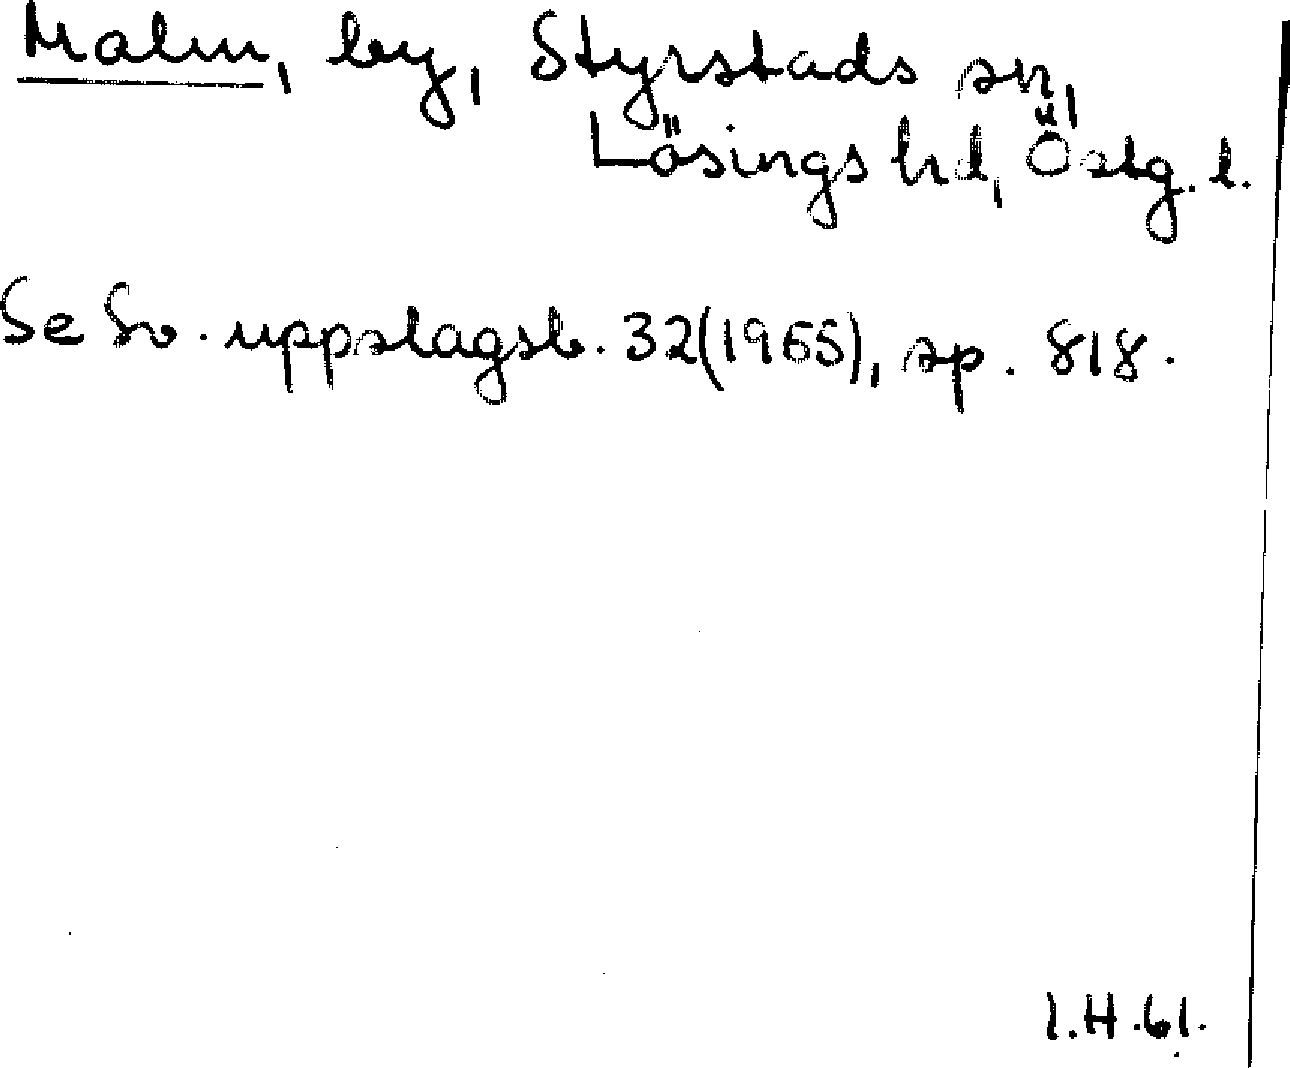 Malm, by, Styrstads sn,
Lösings hd, Östg. l.
Se Sv. uppslagsb. 32(1965), sp. 818.
I.H.61.